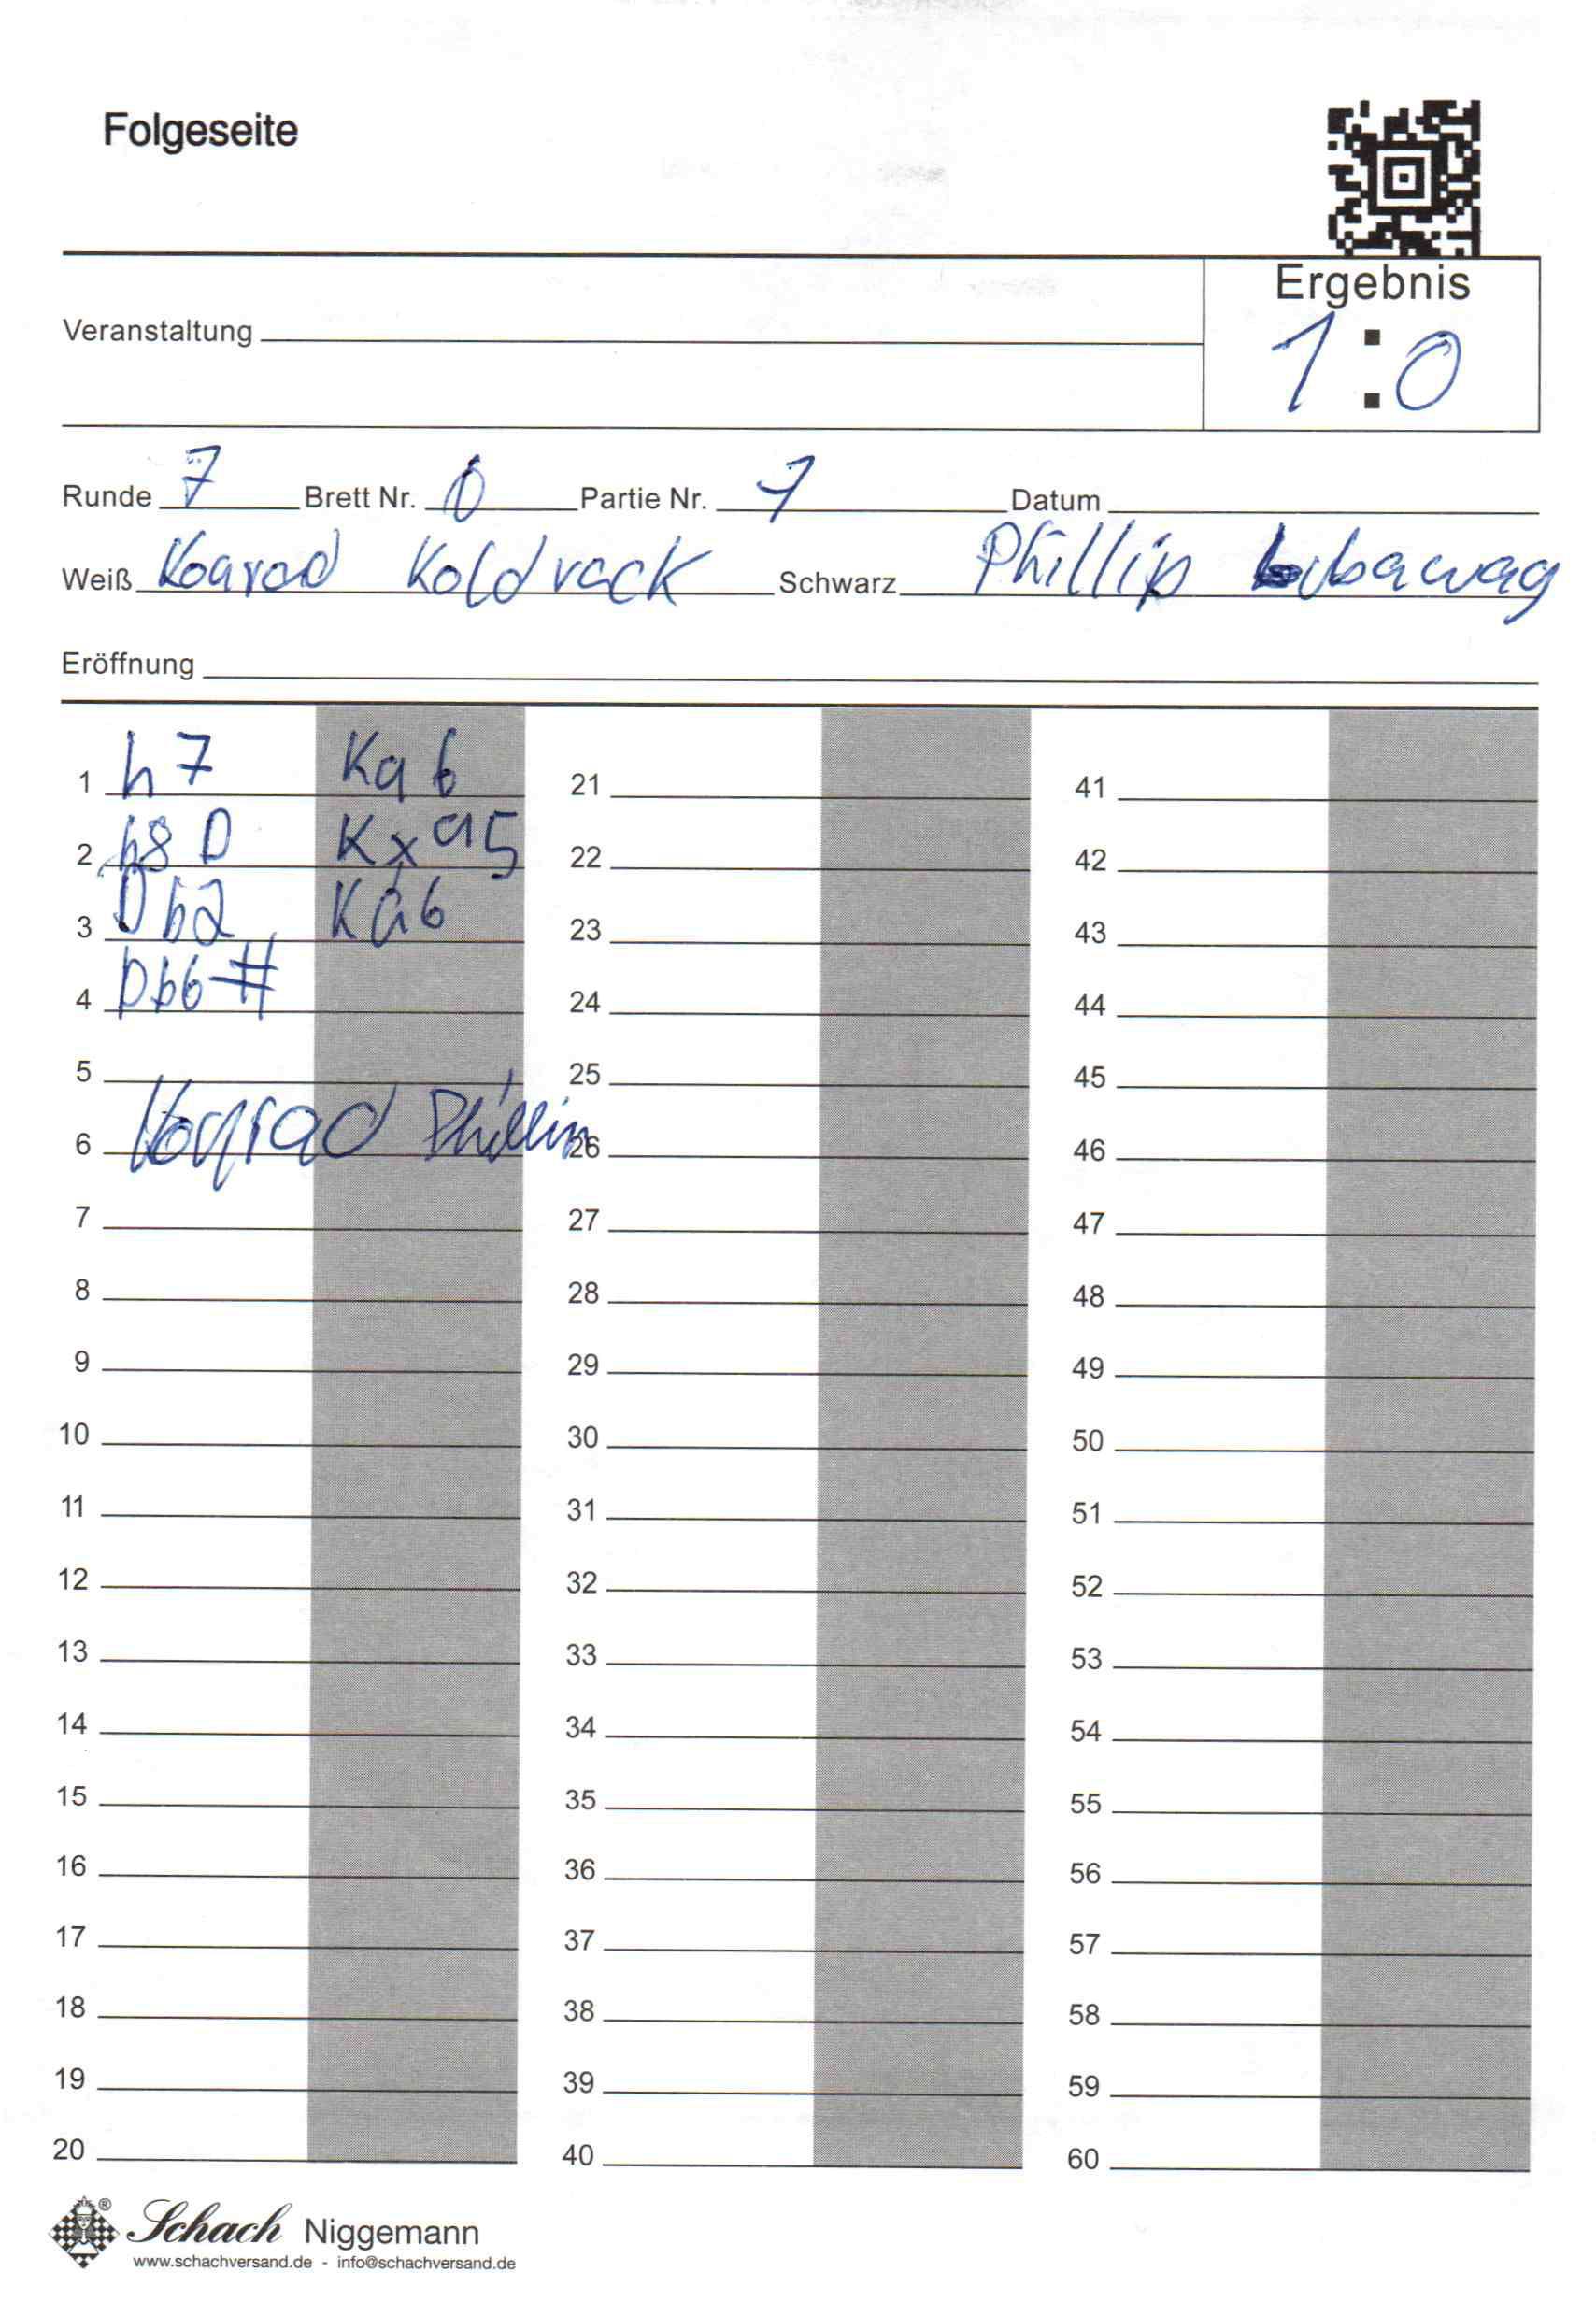 Folgeseite
Ergebnis
1:0
Veranstaltung
Runde 7 Brett Nr. Partie Nr. 7 Datum
Weiß Konrad Koldrack Schwarz Phillip
Eröffnung
1 h7 Ka6 21 41
2 h8D Kxa5 22 42
3 Db2 Ka6 23 43
4 Db6# 24 44
5 25 45
6 Konrad Phillip 26 46
7 27 47
8 28 48
9 29 49
10 30 50
11 31 51
12 32 52
13 33 53
14 34 54
15 35 55
16 36 56
17 37 57
18 38 58
19 39 59
20 40 60
® Schach Niggemann
www.schachversand.de - info@schachversand.de